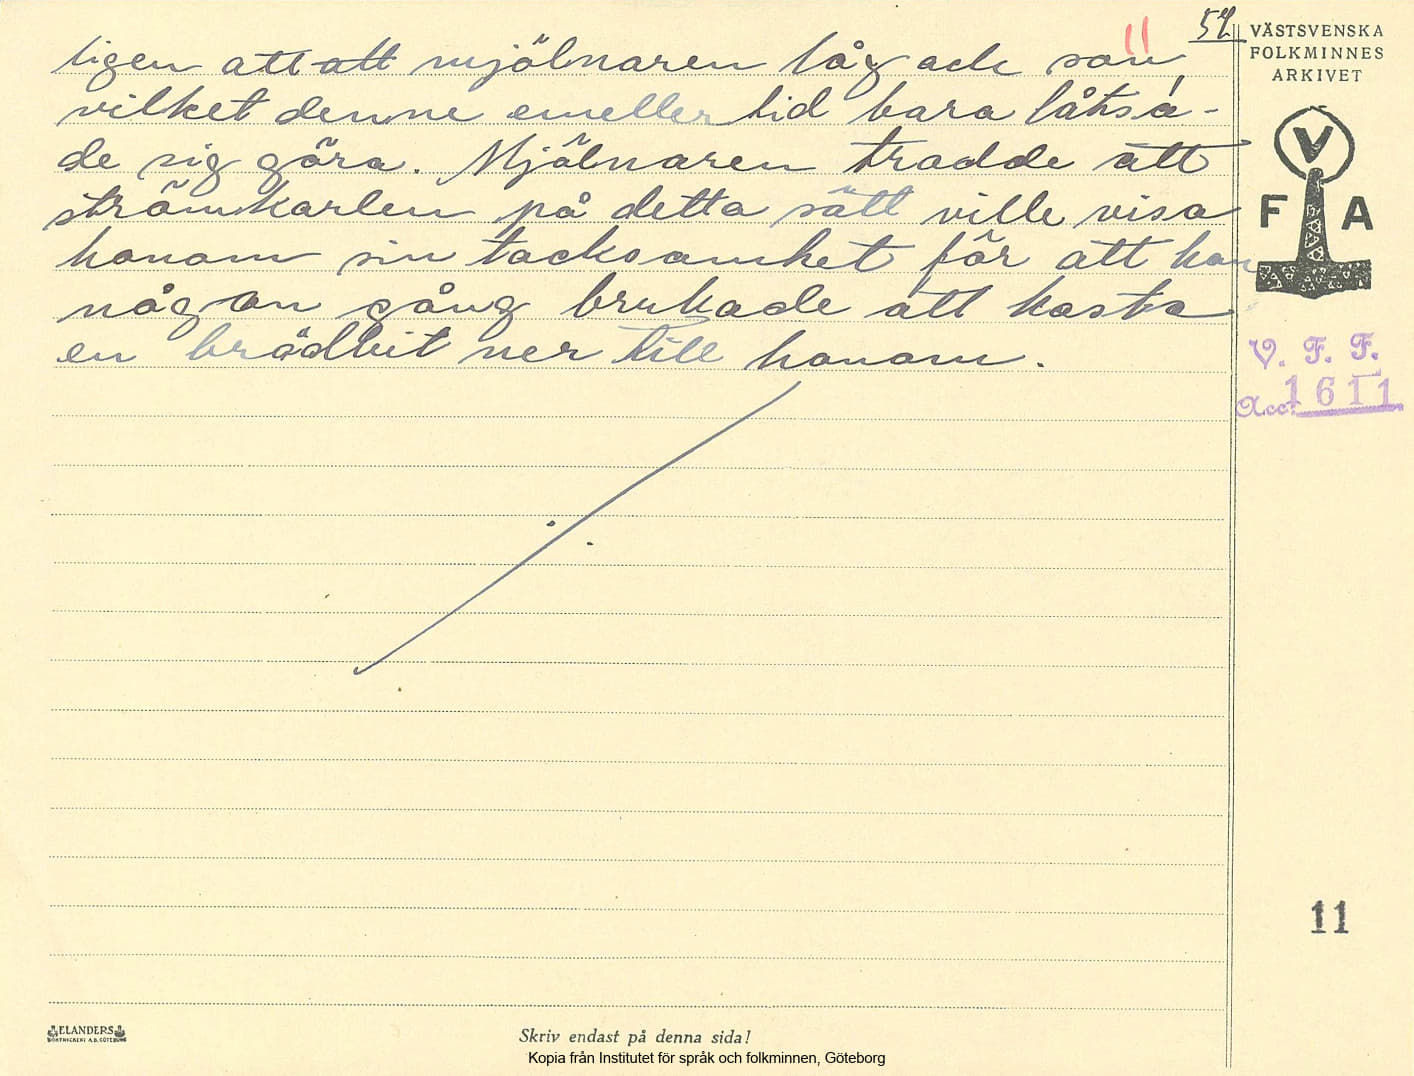 11 57
VÄSTSVENSKA
FOLKMINNES
ARKIVET
ligen att att mjölnaren låg ock sov,
vilket denne emellertid bara låtsa-
de sig göra. Mjölnaren trodde att
strömkarlen på detta sätt ville visa
honom sin tacksamhet för att han
någon gång brukade att kasta
en brödbit ner till honom.
V
F A
V. F. F.
Acc. 1611
11
ELANDERS
BOKTRYCKERI A.B. GÖTEBORG
Skriv endast på denna sida!
Kopia från Institutet för språk och folkminnen, Göteborg